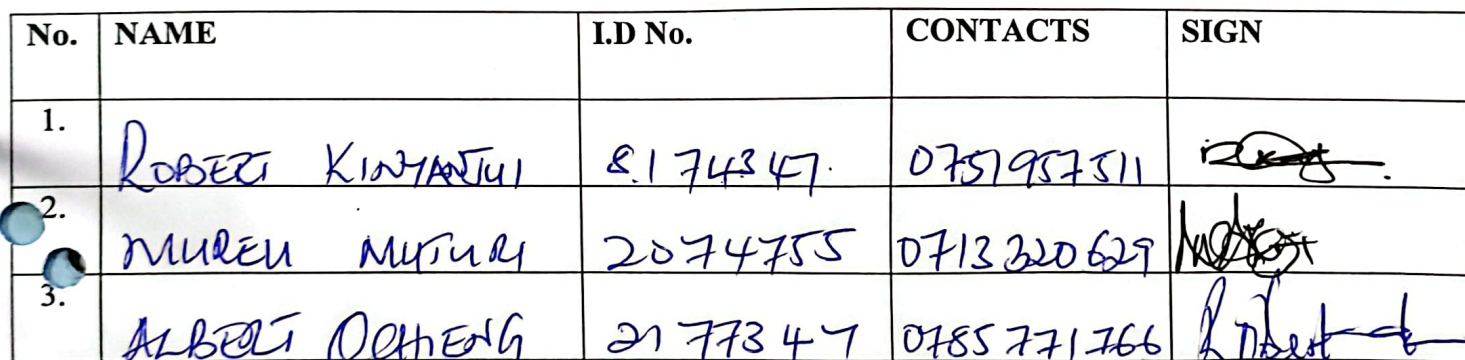 No. NAME I.D No. CONTACTS SIGN
1. ROBERT KINYANJUI 8174347. 0751957511
2. MUREU MUTURI 2074755 0713320629
3. ALBERT OCHIENG 2177347 0785771766